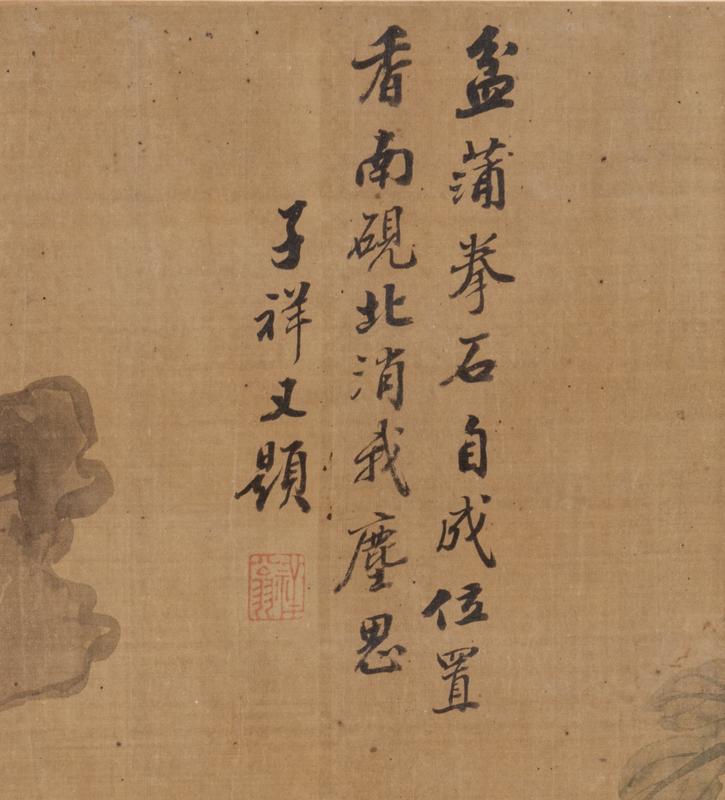 盆蒲拳石自成位置
香南硯北消我塵思
子祥又題
祥翁